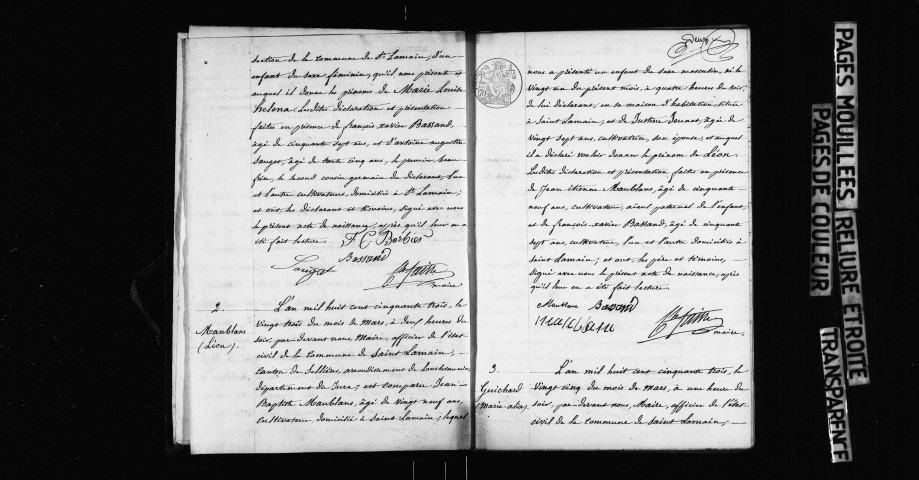 section de la commune de St Lamain, d'un
enfant du sexe féminin, qu'il nous présente et
auquel il donne les prénoms de Marie Louise
helena. Lesdites déclaration et présentation
faites en présence de françois xavier Bassand,
âgé de cinquante sept ans, et d'antoine augustin
Sauget, âgé de trente cinq ans, le premier beau
frère, le second cousin germain du déclarant, l'un
et l'autre cultivateurs, domiciliés à St Lamain;
et ont, les déclarant et témoins, signé avec nous
le présent acte de naissance, après qu'il leur en a
été fait lecture. Barbier
Bassand
Sauget
maire
2.
Maublanc
(Léon).
L'an mil huit cent cinquante trois, le
vingt trois du mois de Mars, à deux heures du
soir, par-devant nous, Maire, officier de l'état
civil de la commune de Saint Lamain,
canton de Sellières, arrondissement de Lons-le-saunier,
département du Jura; est comparu Jean
Baptiste Maublanc, âgé de vingt neuf ans,
cultivateur, domicilié à Saint Lamain, lequel
Deux
nous a présenté un enfant du sexe masculin, né le
vingt un du présent mois, à quatre heures du soir,
de lui déclarant, en sa maison d'habitation, située
à Saint Lamain, et de Justine Jeunet, âgée de
vingt sept ans, cultivatrice, son épouse; et auquel
il a déclaré vouloir donner le prénom de Léon.
Lesdites déclaration et présentation faites en présence
de Jean étienne Maublanc, âgé de cinquante
neuf ans, cultivateur, aïeul paternel de l'enfant,
et de françois xavier Bassand, âgé de cinquante
sept ans, cultivateur, l'un et l'autre domiciliés à
Saint Lamain; et ont, les père et témoins,
signé avec nous le présent acte de naissance, après
qu'il leur en a été fait lecture.
Maublanc Bassand
maire.
3.
Guichard
(Marie
L'an mil huit cent cinquante trois, le
vingt cinq du mois de Mars, à une heure du
soir, par-devant nous, Maire, officier de l'état
civil de la commune de Saint Lamain,
PAGES MOUILLEES RELIURE ETROITE
PAGES DE COULEUR TRANSPARENCE